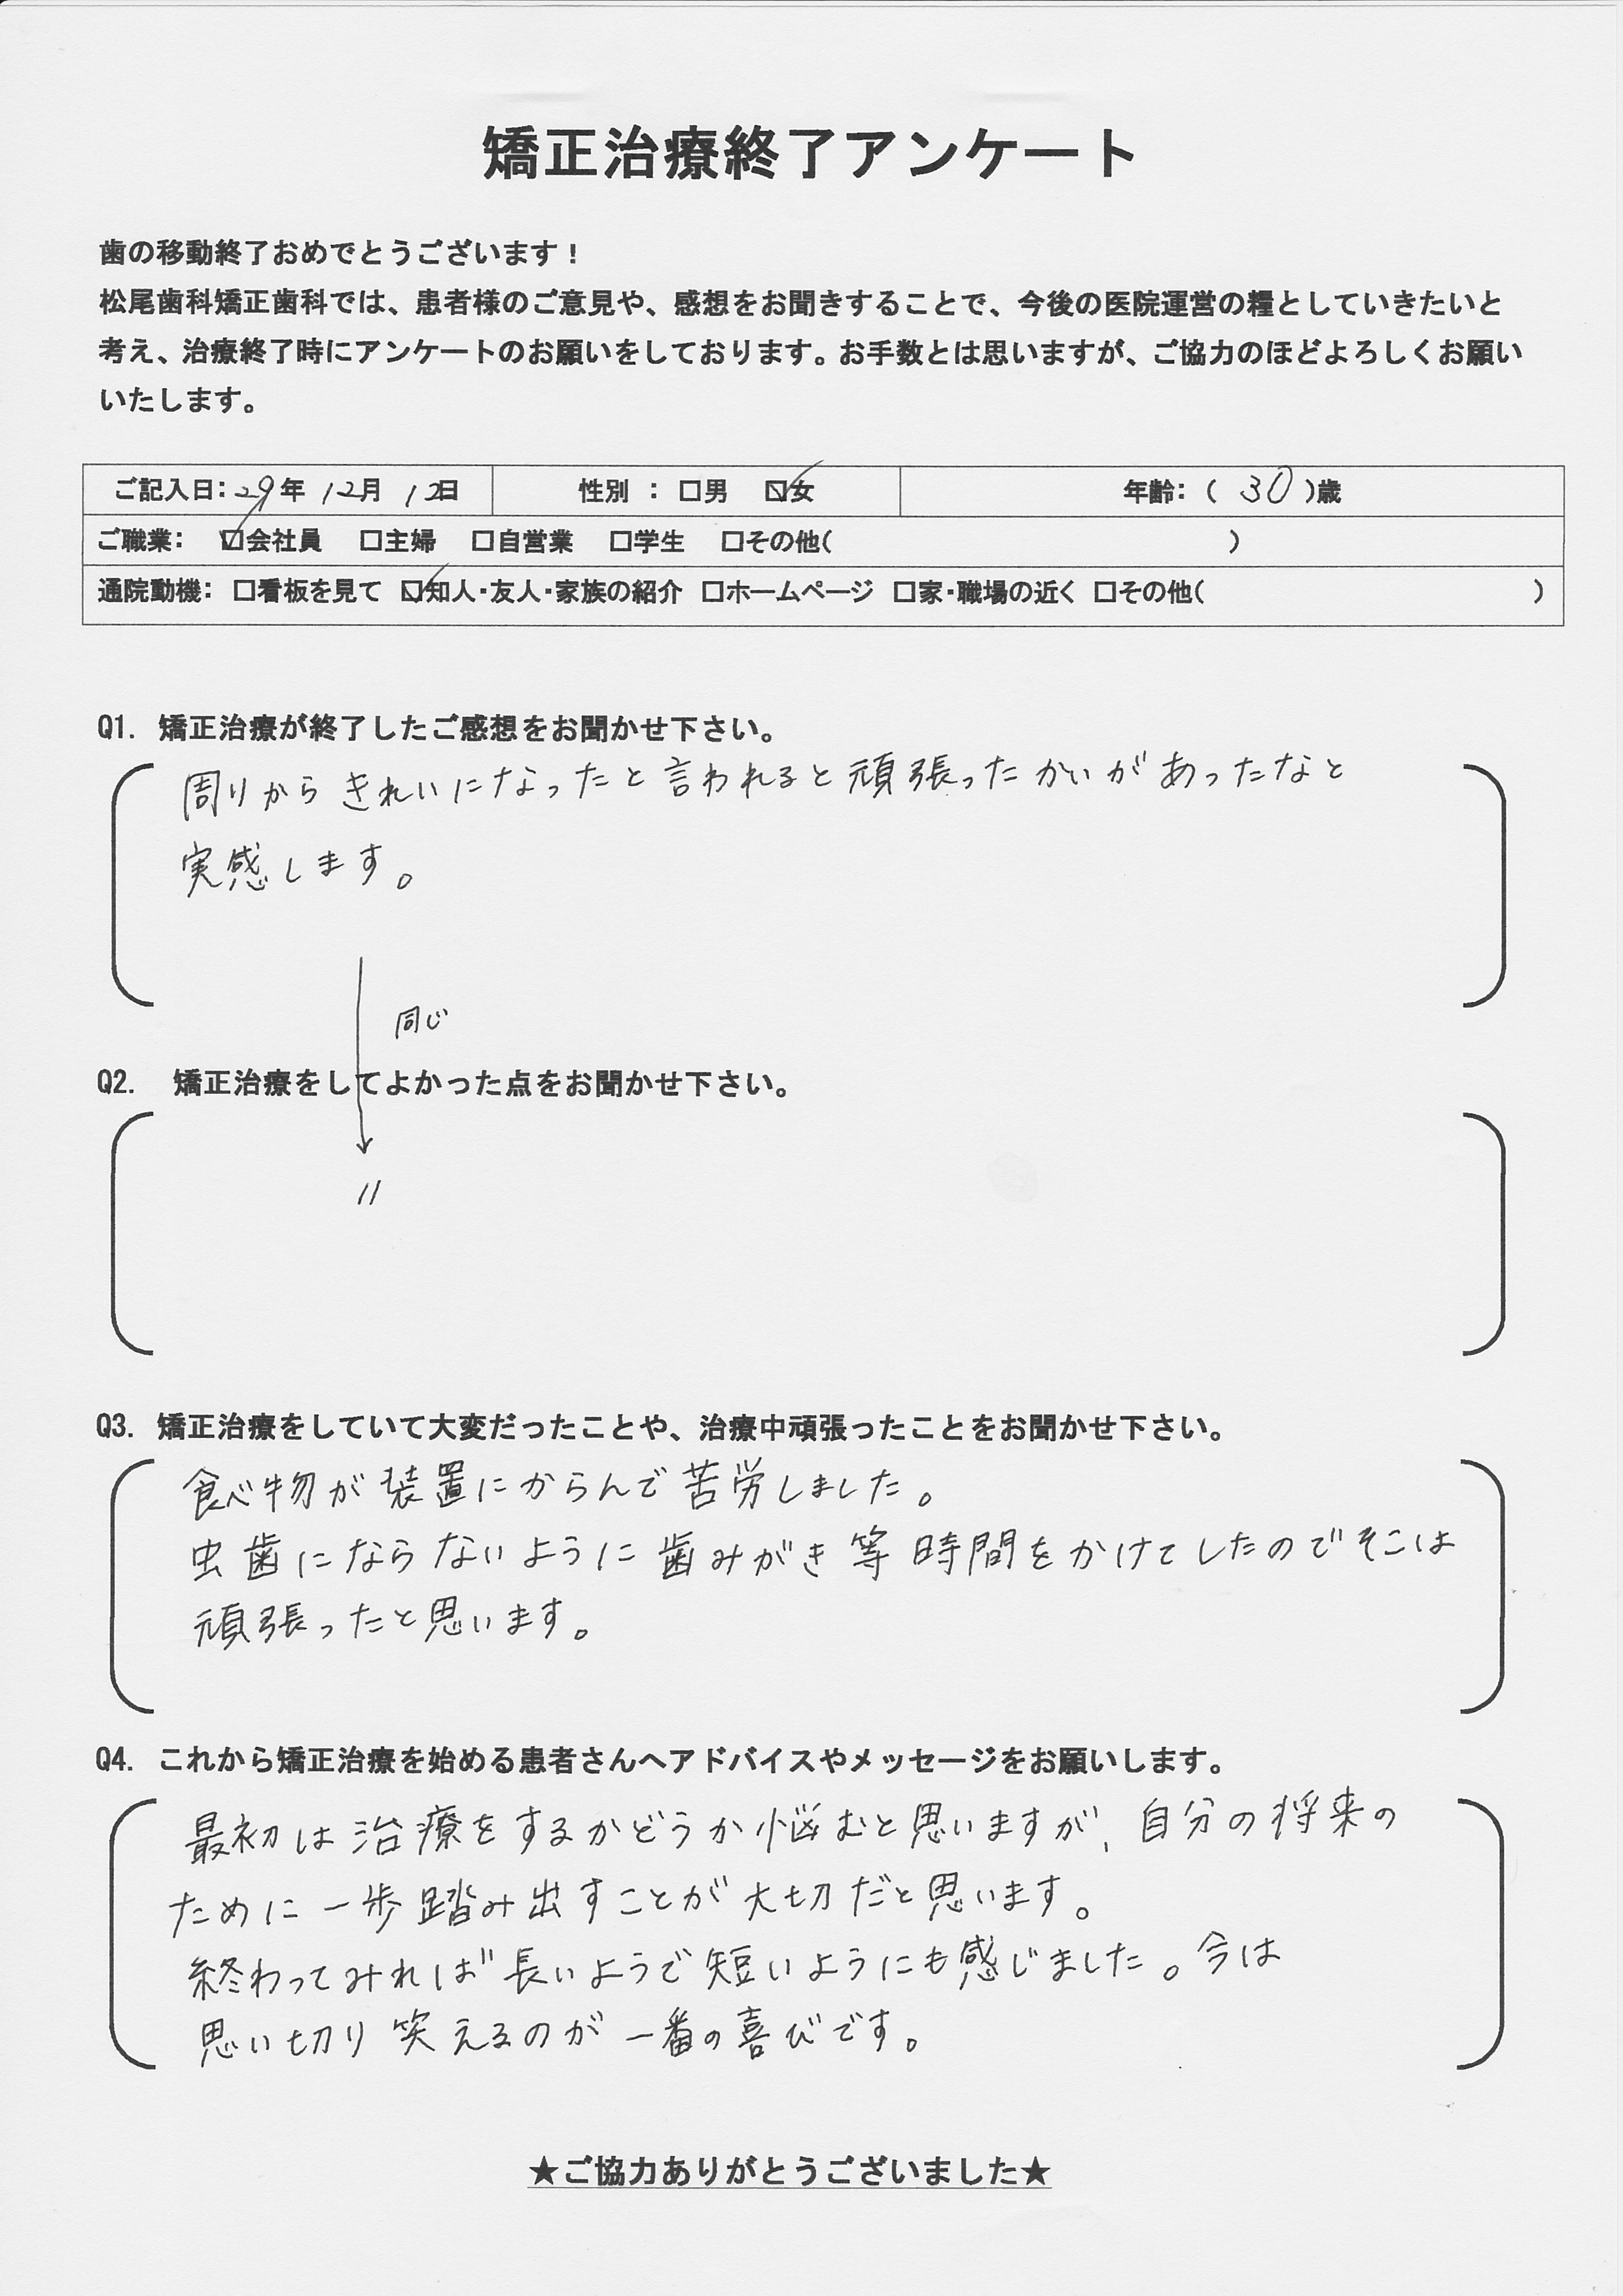 矯正治療終了アンケート
歯の移動終了おめでとうございます！
松尾歯科矯正歯科では、患者様のご意見や、感想をお聞きすることで、今後の医院運営の糧としていきたいと
考え、治療終了時にアンケートのお願いをしております。お手数とは思いますが、ご協力のほどよろしくお願い
いたします。
ご記入日：29年 12月 12日 性別 ： □男 ☑女 年齢：（ 30 ）歳
ご職業： ☑会社員 □主婦 □自営業 □学生 □その他（ ）
通院動機： □看板を見て ☑知人・友人・家族の紹介 □ホームページ □家・職場の近く □その他（ ）
Q1. 矯正治療が終了したご感想をお聞かせ下さい。
周りからきれいになったと言われると頑張ったかいがあったなと
実感します。
同じ
Q2. 矯正治療をしてよかった点をお聞かせ下さい。
〃
Q3. 矯正治療をしていて大変だったことや、治療中頑張ったことをお聞かせ下さい。
食べ物が装置にからんで苦労しました。
虫歯にならないように歯みがき等時間をかけてしたのでそこは
頑張ったと思います。
Q4. これから矯正治療を始める患者さんへアドバイスやメッセージをお願いします。
最初は治療をするかどうか悩むと思いますが、自分の将来の
ために一歩踏み出すことが大切だと思います。
終わってみれば長いようで短いようにも感じました。今は
思い切り笑えるのが一番の喜びです。
★ご協力ありがとうございました★